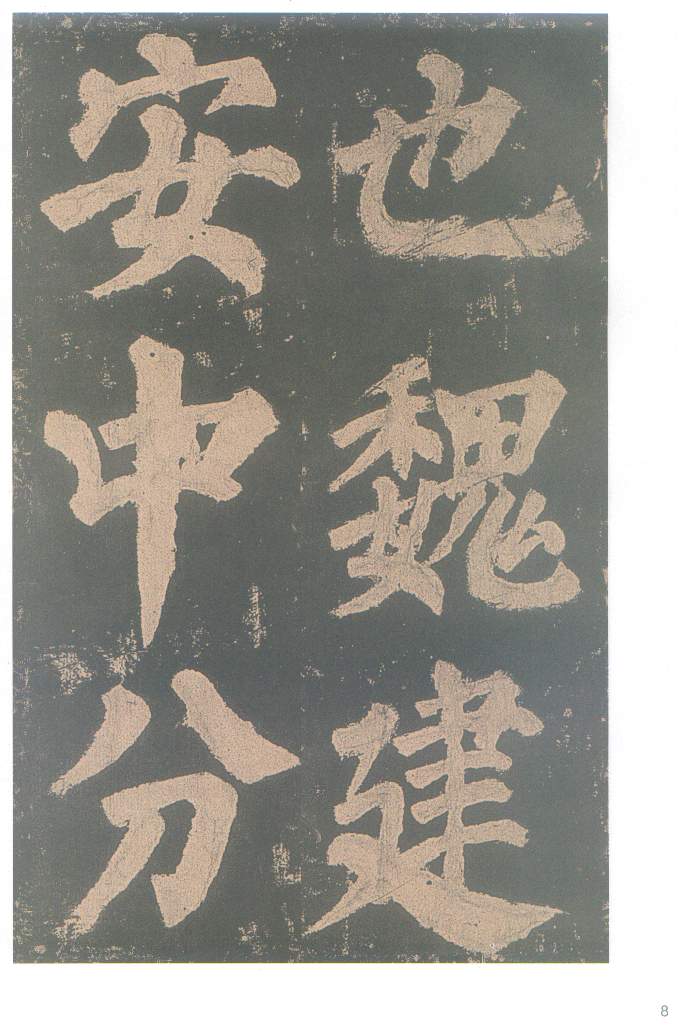 也魏建
安中分
8